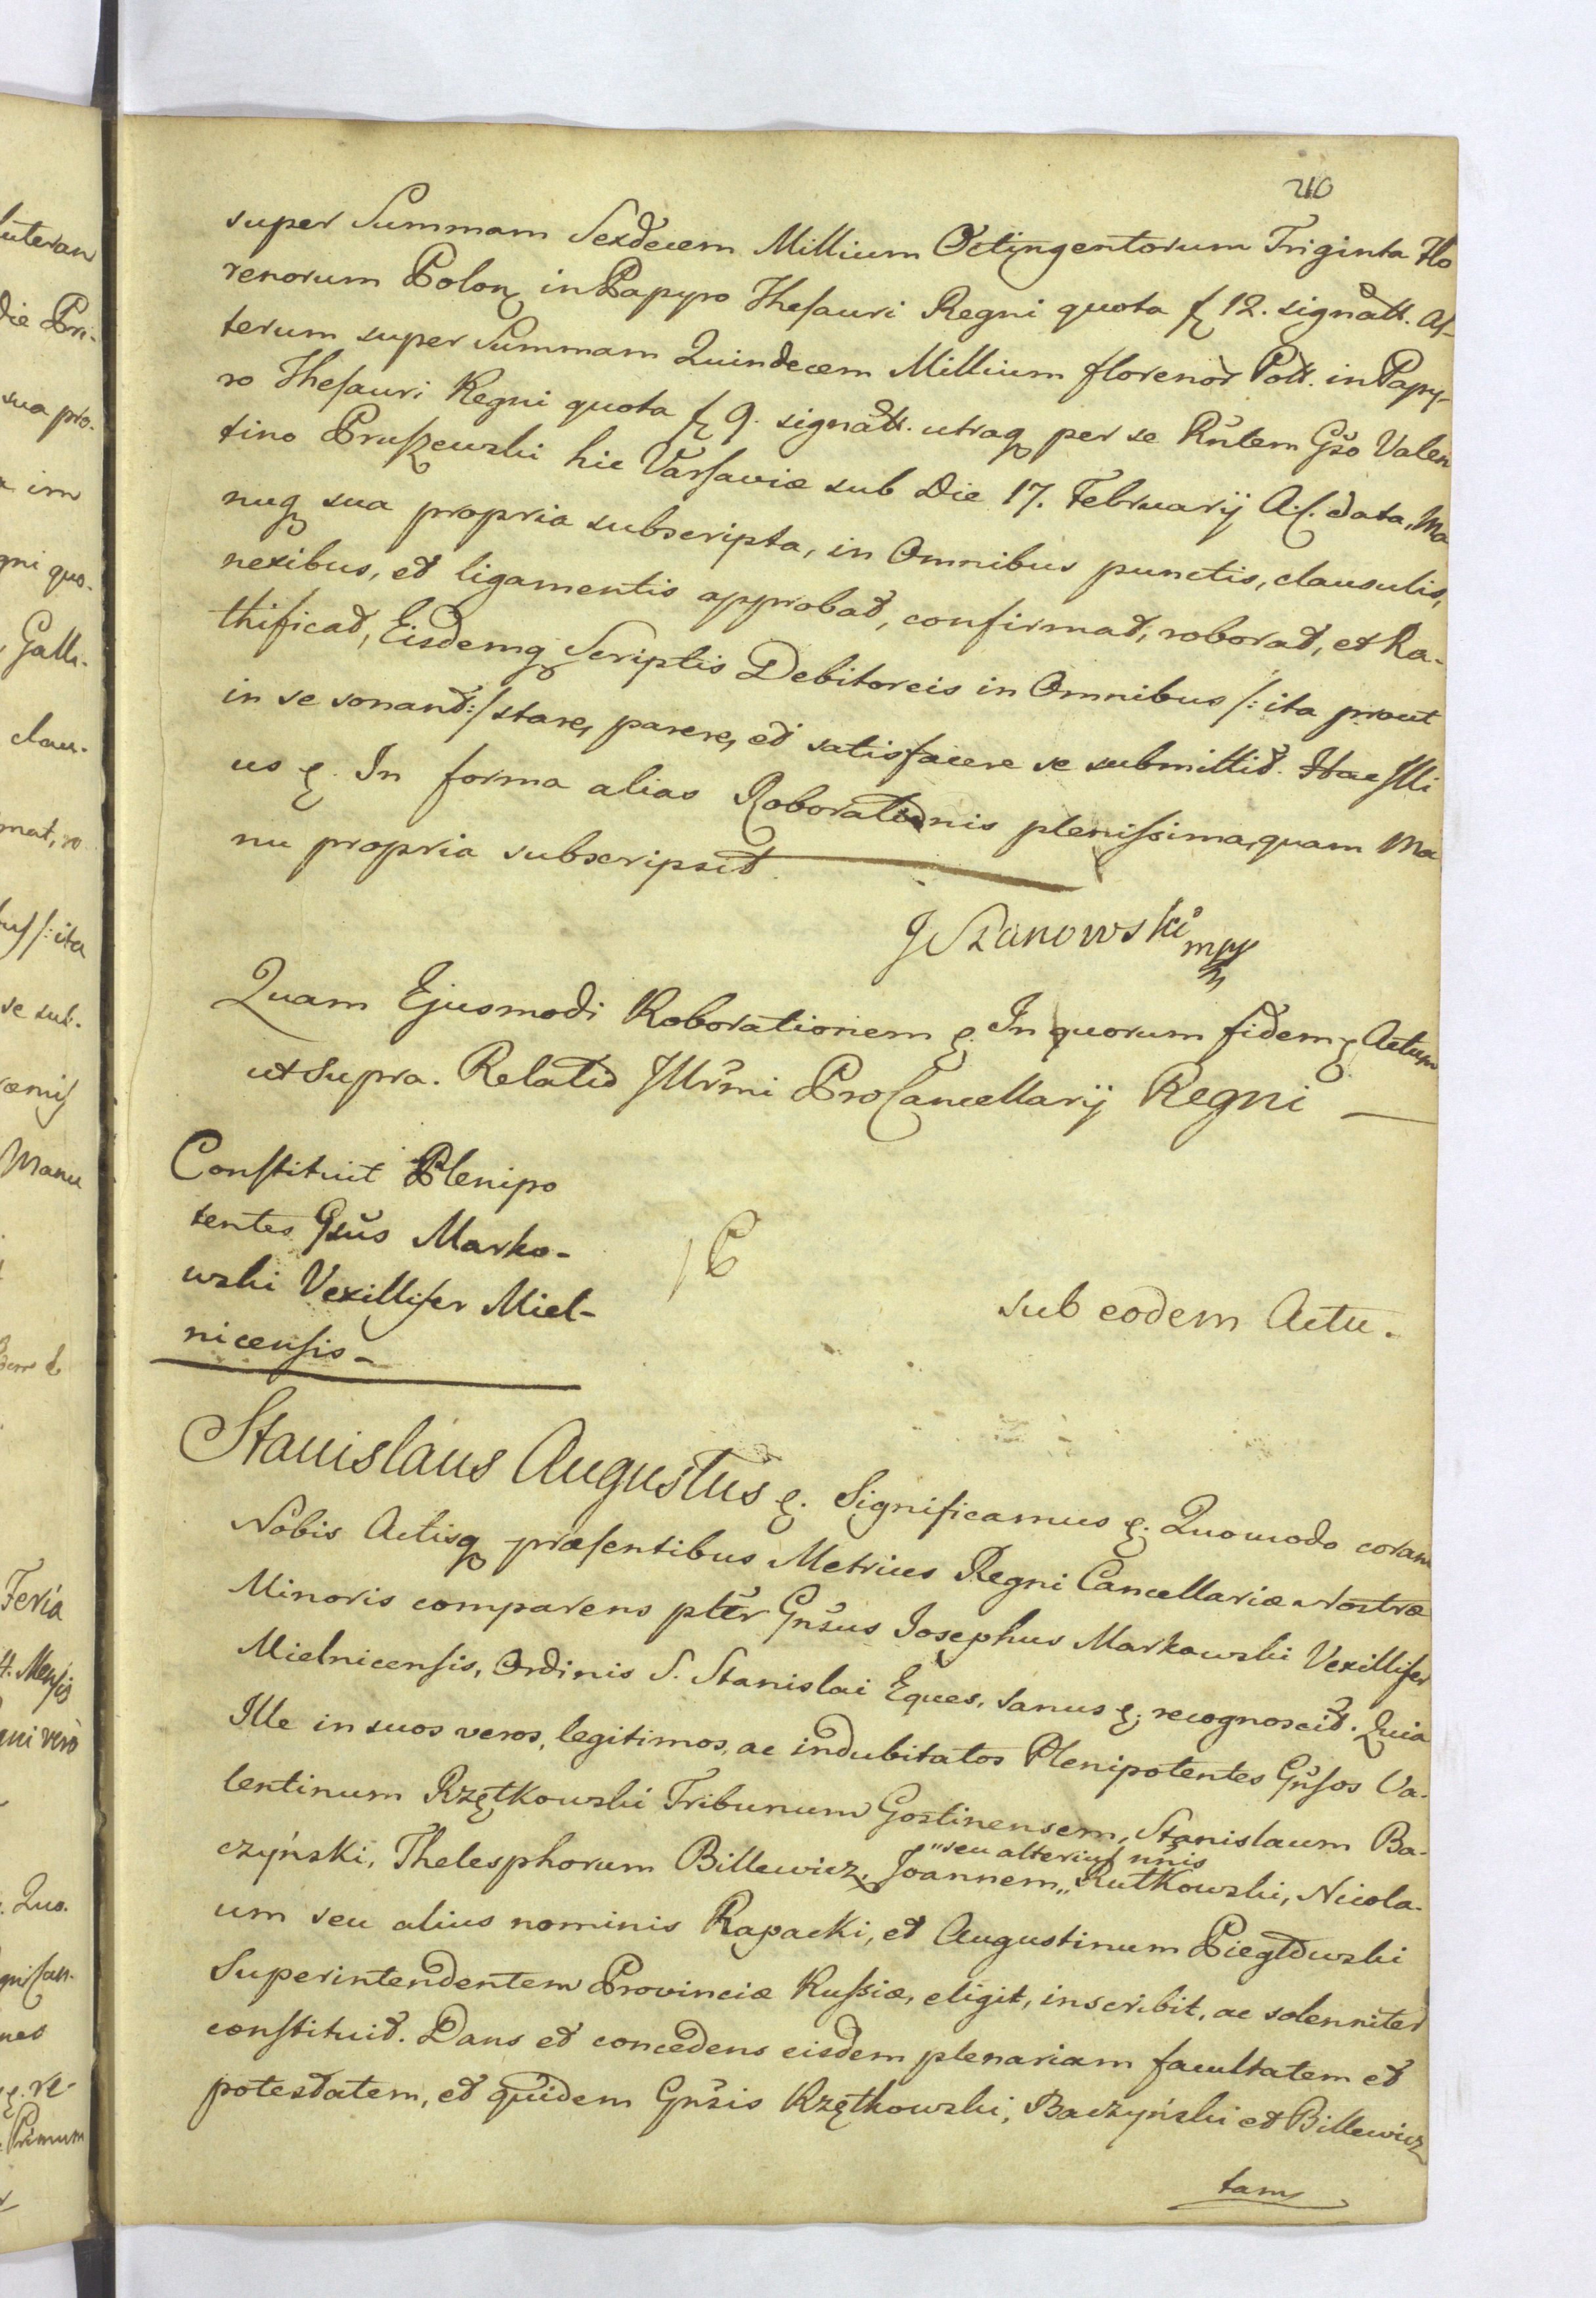 210
super Summam Sexdecem Millium Octingentorum Triginta Flo
renorum Polon in Papyro Thesauri Regni quota f 12. signatt. Al-
terum super Summam Quindecem Millium florenor Poll. in Papy-
ro Thesauri Regni quota f 9. signatt. utraq per se Rntem Gso Valen
tino Pruszewski hic Varsaviæ sub die 17. Februarij A.C. data, Ma
nuq sua propria subscripta, in Omnibus punctis, clausulis,
nexibus, et ligamentis approbat, confirmat, roborat, et Ra-
thificat, Eisdemq Scriptis Debitoreis in Omnibus /: ita prout
in se sonant :/ stare, parere, et satisfacere se submittit. Hac Illi
us &. In forma alias Roborationis plenissima, quam Ma
nu propria subscripsit
J Szanowski mpp
Quam Ejusmodi Roborationem &. In quorum fidem & Actum
ut supra. Relatio Illrmi ProCancellarij Regni —
Constituit Plenipo
tentes Gsus Marko-
wski Vexillifer Miel-
nicensis -
sub eodem Actu.
Stanislaus Augustus &. Significamus &. Quomodo coram
Nobis Actisq præsentibus Metrices Regni Cancellariæ Nostræ
Minoris comparens plter Gnsus Josephus Markowski Vexillifer
Mielnicensis, Ordinis S. Stanislai Eques, sanus &. recognoscit. Quia
Ille in suos veros, legitimos, ac indubitatos Plenipotentes Gnsos Va-
lentinum Rzętkowski Tribunum Gostinensem, Stanislaum Ba-
"seu alterius nnis
czyński, Thelesphorum Billewicz, Joannem „ Rutkowski, Nicola-
um seu alius nominis Rapacki, et Augustinum Piegłowski
Superintendentem Provinciæ Russiæ, eligit, inscribit, ac solenniter
constituit. Dans et concedens eisdem plenariam facultatem et
potestatem, et quidem Gnsis Rzętkowski, Baczyński et Billewicz
tam